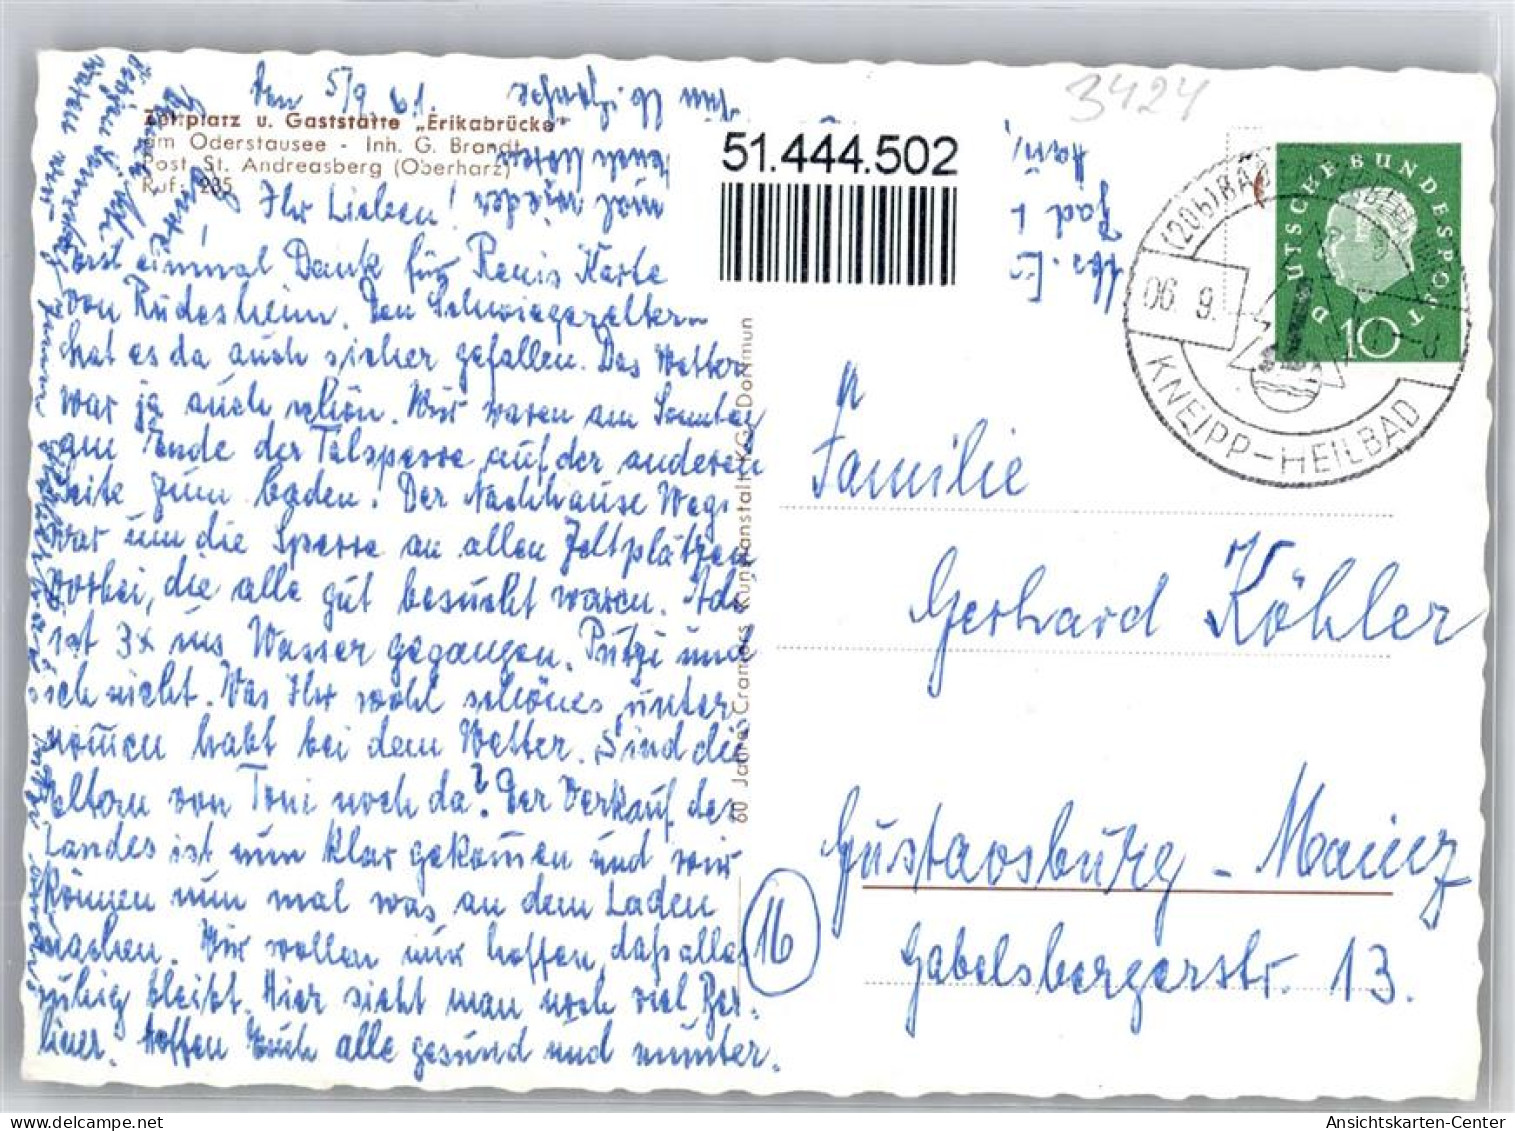 den 5/9 61.
Zeltplatz u. Gaststätte „Erikabrücke"
am Oderstausee - Inh. G. Brandt
Post St. Andreasberg (Oberharz)
Ruf 235
Ihr Lieben!
erst einmal Dank für Renis Karte
von Rüdesheim. Den Schwiegereltern
hat es da auch sicher gefallen. Das Wetter
war ja auch schön. Wir waren am Sonntag
am Ende der Talsperre auf der anderen
Seite zum baden. Der Nachhause Weg
war um die Sperre an allen Zeltplätzen
vorbei, die alle gut besucht waren. Adi
ist 3x ins Wasser gegangen. Putzi und
ich nicht. Was Ihr wohl schönes unter
nommen habt bei dem Wetter. Sind die
Eltern von Toni noch da? Der Verkauf des
Landes ist nun klar gekommen und wir
können nun mal was an dem Laden
machen. Wir wollen nur hoffen, daß alles
ruhig bleibt. Hier sieht man noch viel Ber-
liner. Hoffen Euch alle gesund und munter.
60 Jahre Cramers Kunstanstalt KG Dortmun
51.444.502
3424
(20b) BAD
06. 9.
KNEIPP-HEILBAD
DEUTSCHE BUNDESPOST
10
Familie
Gerhard Köhler
16
Gustavsburg - Mainz
Gabelsbergerstr. 13.
Ansichtskarten-Center